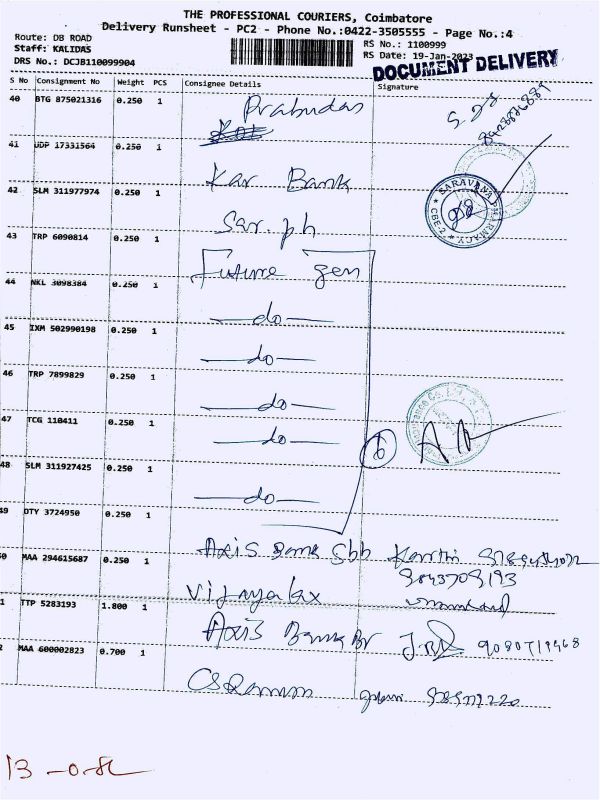 THE PROFESSIONAL COURIERS, Coimbatore
Delivery Runsheet - PC2 - Phone No.:0422-3505555 - Page No.:4
Route: DB ROAD
RS No.: 1100999
Staff: KALIDAS
RS Date: 19-Jan-2023
DRS No.: DCJB110099904
DOCUMENT DELIVERY
S No Consignment No Weight PCS Consignee Details Signature
40 BTG 875021316 0.250 1 Prabudas
41 UDP 17331564 0.250 1 Kar Bank
42 SLM 311977974 0.250 1 Sar. ph
SARAVANA PHARMACY
CBE-2
43 TRP 6090814 0.250 1 Future gen
44 NKL 3098384 0.250 1 —do—
45 IXM 502990198 0.250 1 —do—
46 TRP 7899829 0.250 1 —do—
47 TCG 110411 0.250 1 —do—
6
48 SLM 311927425 0.250 1 —do—
49 DTY 3724950 0.250 1 Axis Bank
0 MAA 294615687 0.250 1 Vijayalax
1 TTP 5283193 1.800 1 Axis Bank Br 9080719468
2 MAA 600002823 0.700 1 CS Raman